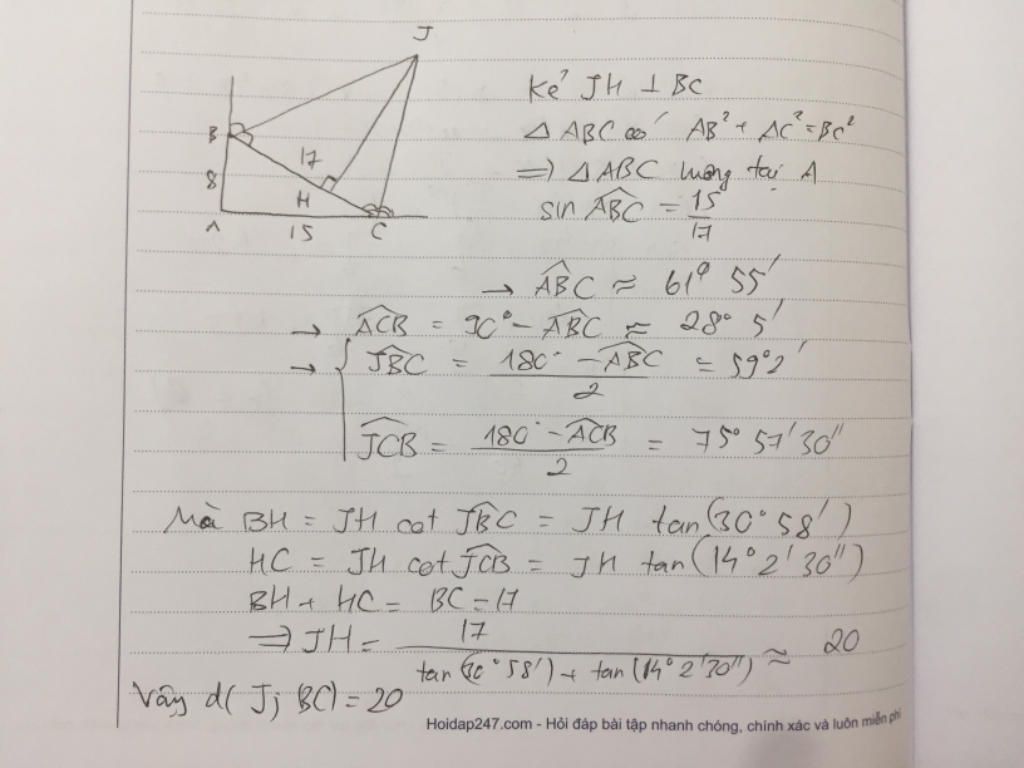 J
B
17
8
H
A
15
C
Kẻ JH ⊥ BC
△ ABC có AB² + AC² = BC²
=> △ ABC vuông tại A
sin ABC^ = 15/17
→ ABC^ ≈ 61° 55'
→ ACB^ = 90° - ABC^ ≈ 28° 5'
→ { JBC^ = (180° - ABC^)/2 = 59° 2'
JCB^ = (180° - ACB^)/2 = 75° 57' 30''
Mà BH = JH cot JBC^ = JH tan(30° 58')
HC = JH cot JCB^ = JH tan(14° 2' 30'')
BH + HC = BC = 17
=> JH = 17/(tan(30° 58') + tan(14° 2' 30'')) ≈ 20
Vậy d(J; BC) = 20
Hoidap247.com - Hỏi đáp bài tập nhanh chóng, chính xác và luôn miễn phí